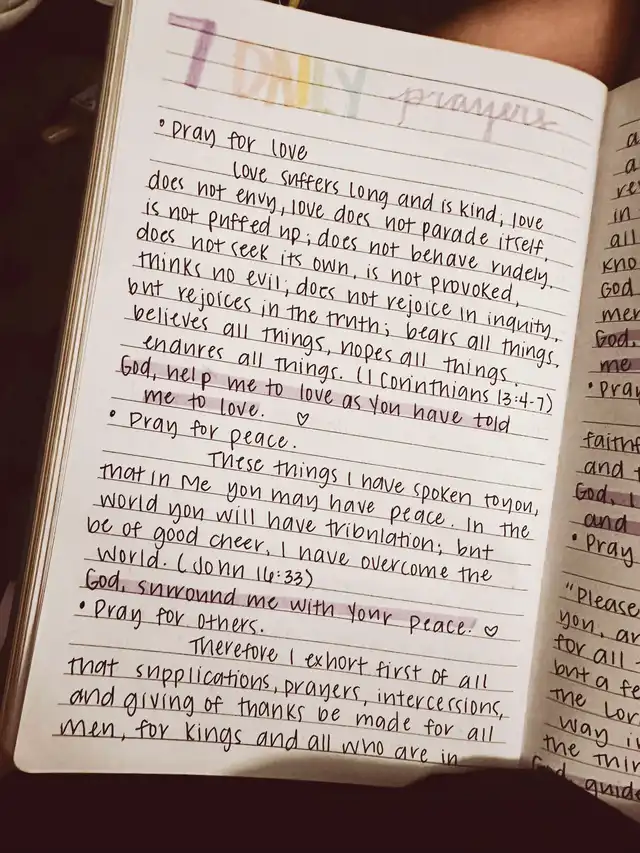 7 DAILY prayers
• Pray for love
Love suffers long and is kind; love
does not envy, love does not parade itself,
is not puffed up; does not behave rudely.
does not seek its own, is not provoked,
thinks no evil; does not rejoice in inquity,
but rejoices in the truth; bears all things,
believes all things, hopes all things.
endures all things. (1 Corinthians 13:4-7)
God, help me to love as you have told
me to love. ♡
• Pray for peace.
These things I have spoken to you,
that in Me you may have peace. In the
world you will have tribulation; but
be of good cheer, I have overcome the
world. (John 16:33)
God, surround me with Your peace! ♡
• Pray for others.
Therefore I exhort first of all
that supplications, prayers, intercessions,
and giving of thanks be made for all
men, for kings and all who are in
a
a
in
all
God
God,
me
• Pray
and
God,
and
• Pray
"Please
for all
but a
the
way
the
God, guide